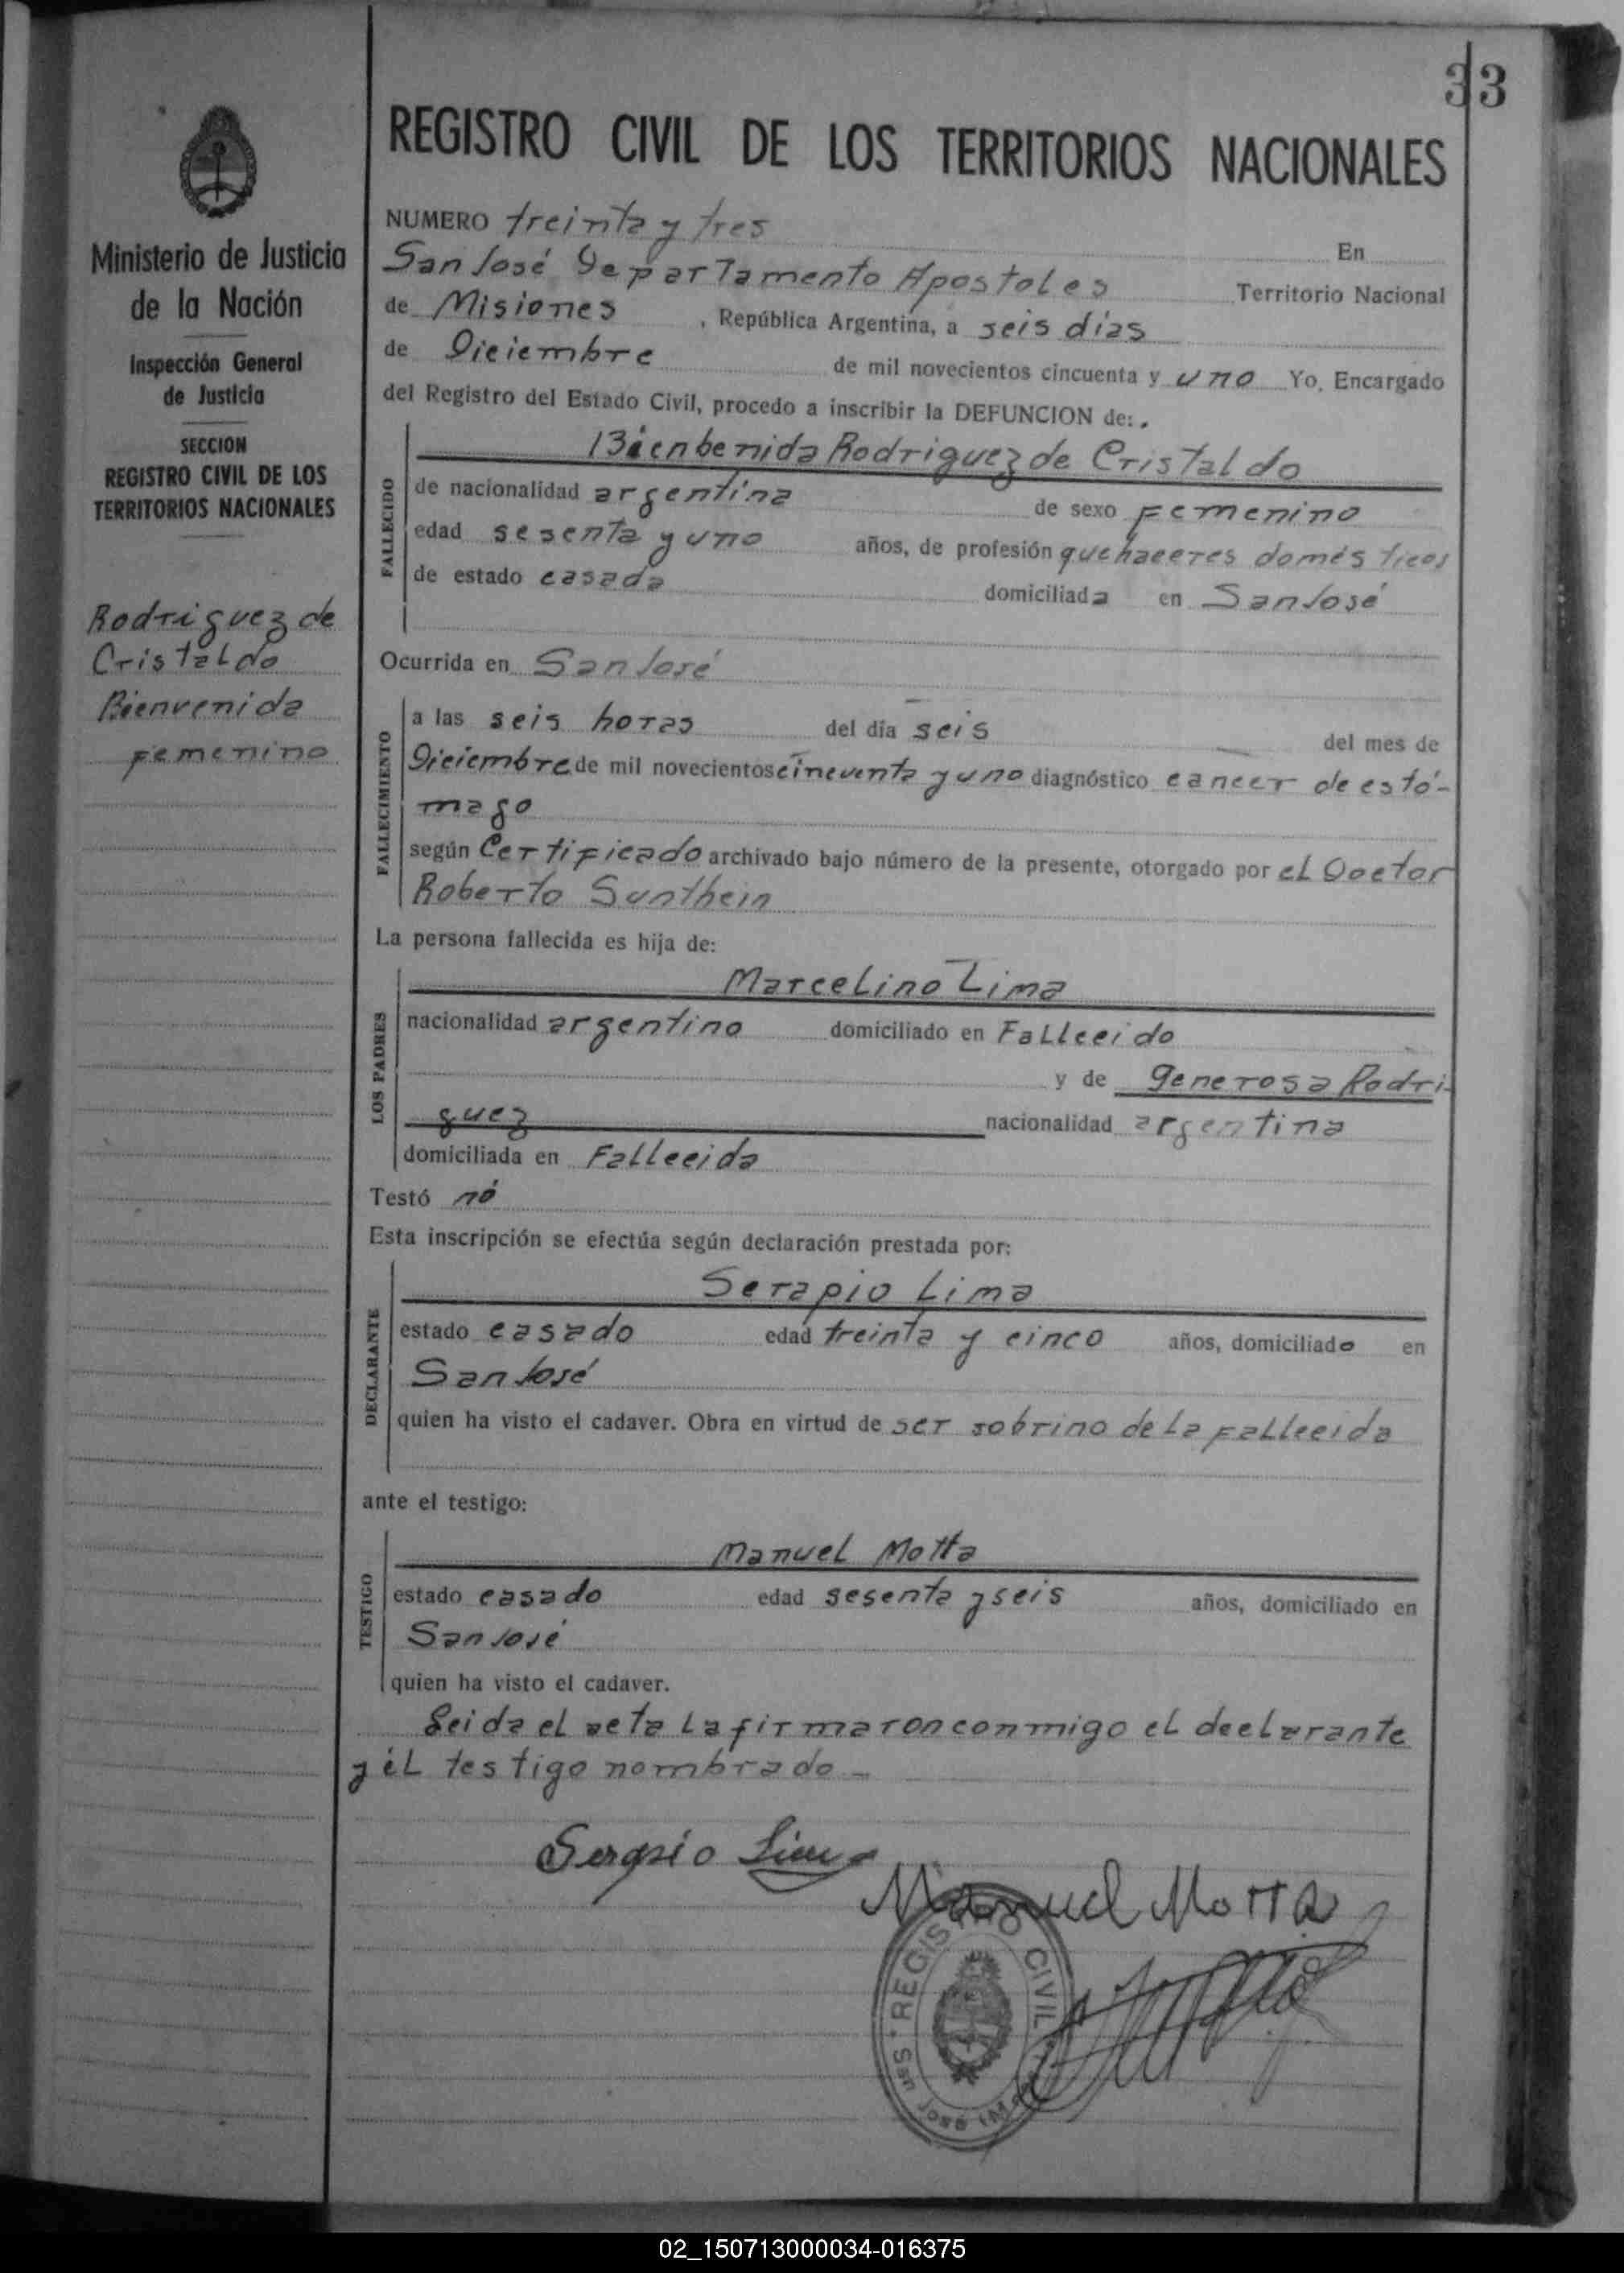 33
REGISTRO CIVIL DE LOS TERRITORIOS NACIONALES
Ministerio de Justicia
de la Nación
Inspección General
de Justicia
SECCION
REGISTRO CIVIL DE LOS
TERRITORIOS NACIONALES
Rodriguez de
Cristaldo
Bienvenida
Femenino
NUMERO treinta y tres En
San José Departamento Apostoles Territorio Nacional
de Misiones, República Argentina, a seis dias
de Diciembre de mil novecientos cincuenta y uno Yo, Encargado
del Registro del Estado Civil, procedo a inscribir la DEFUNCION de:
FALLECIDO
Bienbenida Rodriguez de Cristaldo
de nacionalidad argentina de sexo Femenino
edad sesenta y uno años, de profesión quehaceres domésticos
de estado casada domiciliada en San José
Ocurrida en San José
FALLECIMIENTO
a las seis horas del día seis del mes de
Diciembre de mil novecientos cincuenta y uno diagnóstico cancer de estó-
mago
según Certificado archivado bajo número de la presente, otorgado por el Doctor
Roberto Sunthein
La persona fallecida es hija de:
LOS PADRES
Marcelino Lima
nacionalidad argentino domiciliado en Fallecido
y de Generosa Rodri-
guez nacionalidad argentina
domiciliada en Fallecida
Testó nó
Esta inscripción se efectúa según declaración prestada por:
DECLARANTE
Serapio Lima
estado casado edad treinta y cinco años, domiciliado en
San José
quien ha visto el cadaver. Obra en virtud de ser sobrino de la Fallecida
ante el testigo:
TESTIGO
Manuel Motta
estado casado edad sesenta y seis años, domiciliado en
San José
quien ha visto el cadaver.
Leida el acta la firmaron conmigo el declarante
y el testigo nombrado -
Serapio Lima
Manuel Motta
REGISTRO CIVIL
02_150713000034-016375